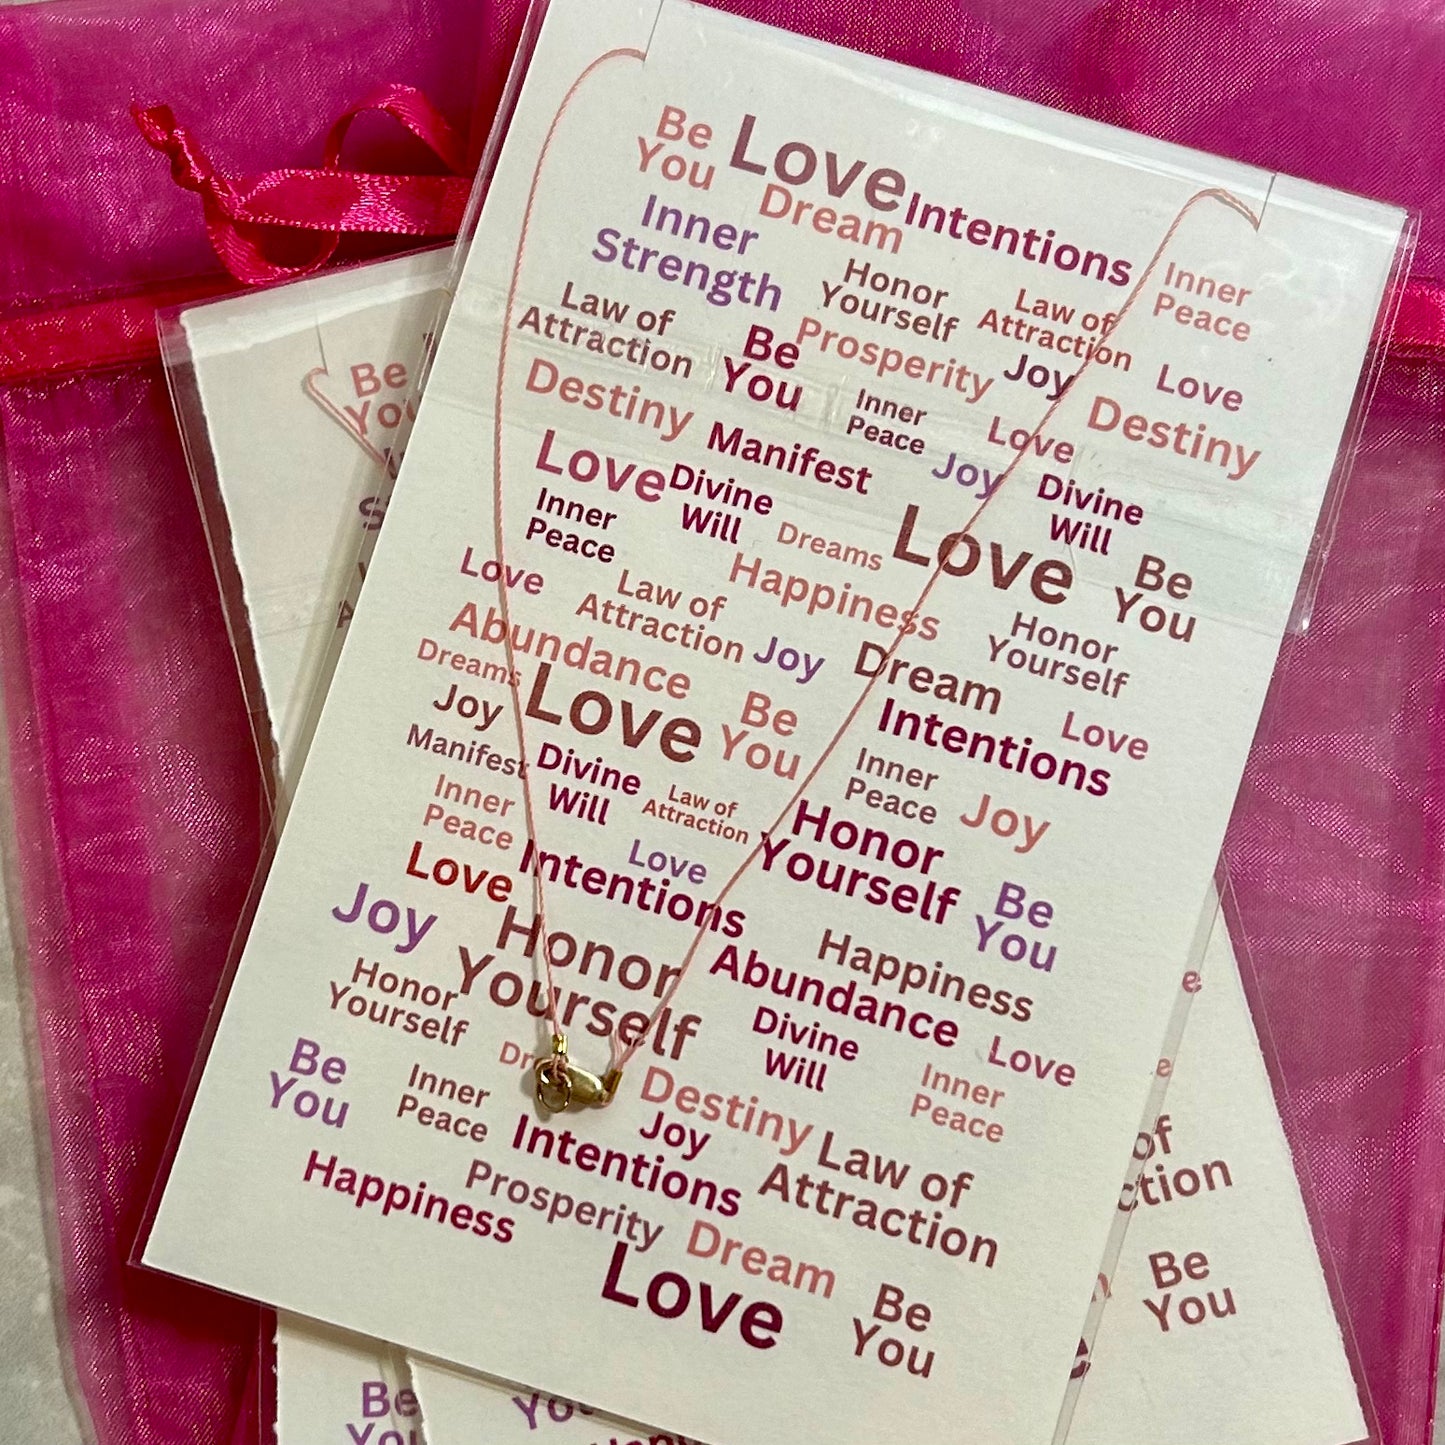 Be
You
Love
Dream
Intentions
Inner
Strength
Honor
Yourself
Law of
Attraction
Inner
Peace
Law of
Attraction
Be
You
Prosperity
Joy
Love
Destiny
Manifest
Inner
Peace
Love
Destiny
Love
Divine
Will
Joy
Divine
Will
Inner
Peace
Dreams
Love
Be
You
Love
Law of
Attraction
Happiness
Honor
Yourself
Abundance
Joy
Dream
Dreams
Love
Be
You
Intentions
Love
Joy
Manifest
Divine
Will
Law of
Attraction
Inner
Peace
Joy
Inner
Peace
Love
Honor
Yourself
Be
You
Love
Intentions
Joy
Honor
Yourself
Happiness
Abundance
Honor
Yourself
Divine
Will
Love
Be
You
Inner
Peace
Destiny
Inner
Peace
Intentions
Joy
Law of
Attraction
Happiness
Prosperity
Dream
Love
Be
You
Be
of
ction
Be
You
Be